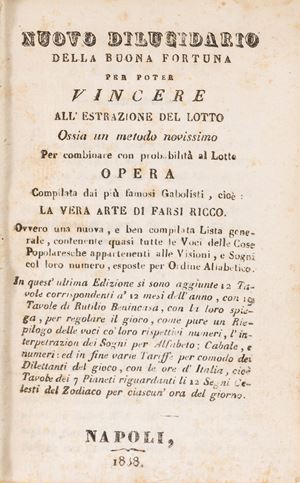 NUOVO DILUCIDARIO
DELLA BUONA FORTUNA
PER POTER
VINCERE
ALL'ESTRAZIONE DEL LOTTO
Ossia un metodo novissimo
Per combinare con probabilità al Lotto
OPERA
Compilata dai più famosi Gabolisti, cioè:
LA VERA ARTE DI FARSI RICCO.
Ovvero una nuova, e ben compilata Lista gene-
rale, contenente quasi tutte le Voci delle Cose
Popolaresche appartenenti alle Visioni, e Sogni
col loro numero, esposte per Ordine Alfabetico.
In quest'ultima Edizione si sono aggiunte 12 Ta-
vole corrispondenti a' 12 mesi dell'anno, con
Tavole di Rutilio Benincasa, con li loro spie-
ga, per regolare il gioco, come pure un Rie-
pilogo delle voci co' loro rispettivi numeri, l'in-
terpetrazion dei Sogni per Alfabeto; Cabale, e
numeri: ed in fine varie Tariffe per comodo dei
Dilettanti del gioco, con le ore d'Italia, cioè
Tavole dei 7 Pianeti riguardanti li 12 Segni Ce-
lesti del Zodiaco per ciascun' ora del giorno.
NAPOLI,
1838.